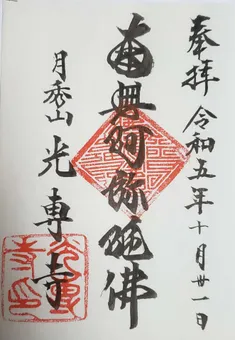 奉拝 令和五年十月廿一日
南無阿弥陀佛
月秀山 光専寺